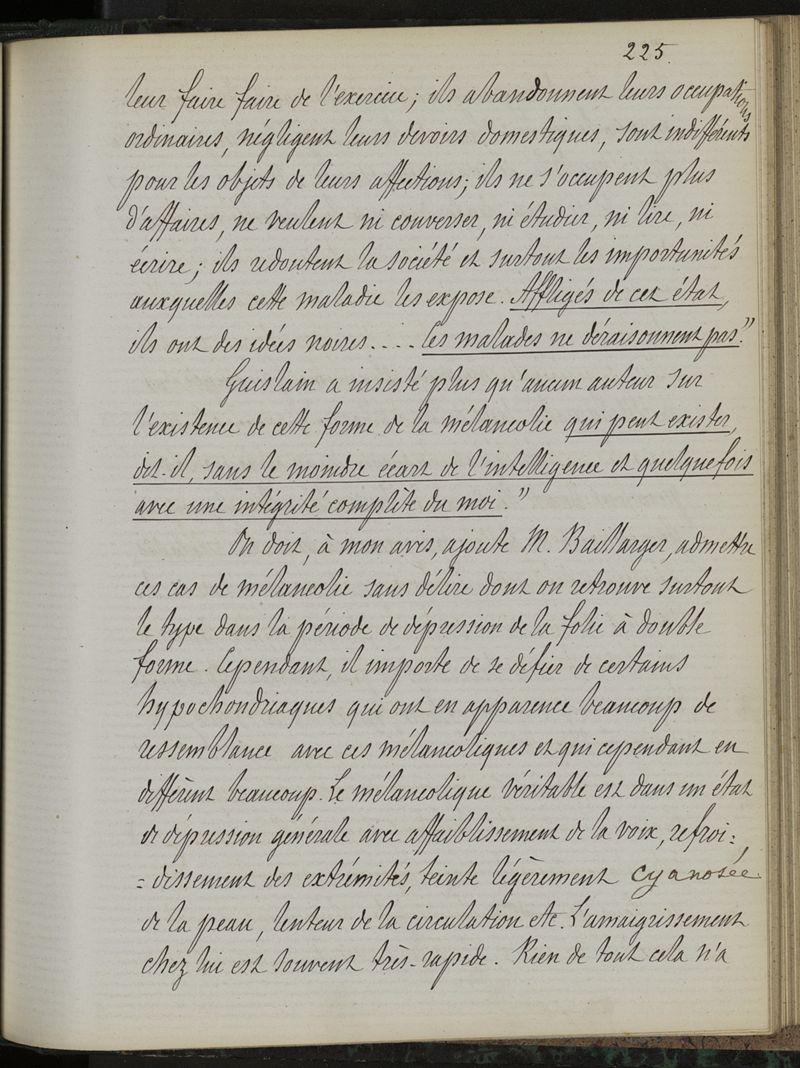 225.
leur faire faire de l'exercice ; ils abandonnent leurs occupations
ordinaires, négligent leurs devoirs domestiques, sont indifférents
pour les objets de leurs affections ; ils ne s'occupent plus
d'affaires, ne veulent ni converser, ni étudier, ni lire, ni
écrire ; ils redoutent la société et surtout les importunités
auxquelles cette maladie les expose. Affligés de cet état,
ils ont des idées noires.... Ces malades ne déraisonnent pas."
Guislain a insisté plus qu'aucun auteur sur
l'existence de cette forme de la mélancolie qui peut exister,
dit-il, sans le moindre écart de l'intelligence et quelquefois
avec une intégrité complète du moi."
On doit, à mon avis, ajoute M. Baillarger, admettre
ces cas de mélancolie sans délire dont on retrouve surtout
le type dans la période de dépression de la folie à double
forme. Cependant, il importe de se défier de certains
hypochondriaques qui ont en apparence beaucoup de
ressemblance avec ces mélancoliques et qui cependant en
diffèrent beaucoup. Le mélancolique véritable est dans un état
de dépression générale avec affaiblissement de la voix, refroi=
=dissement des extrémités, teinte légèrement cyanosée
de la peau, lenteur de la circulation etc. L'amaigrissement
chez lui est souvent très-rapide. Rien de tout cela n'a